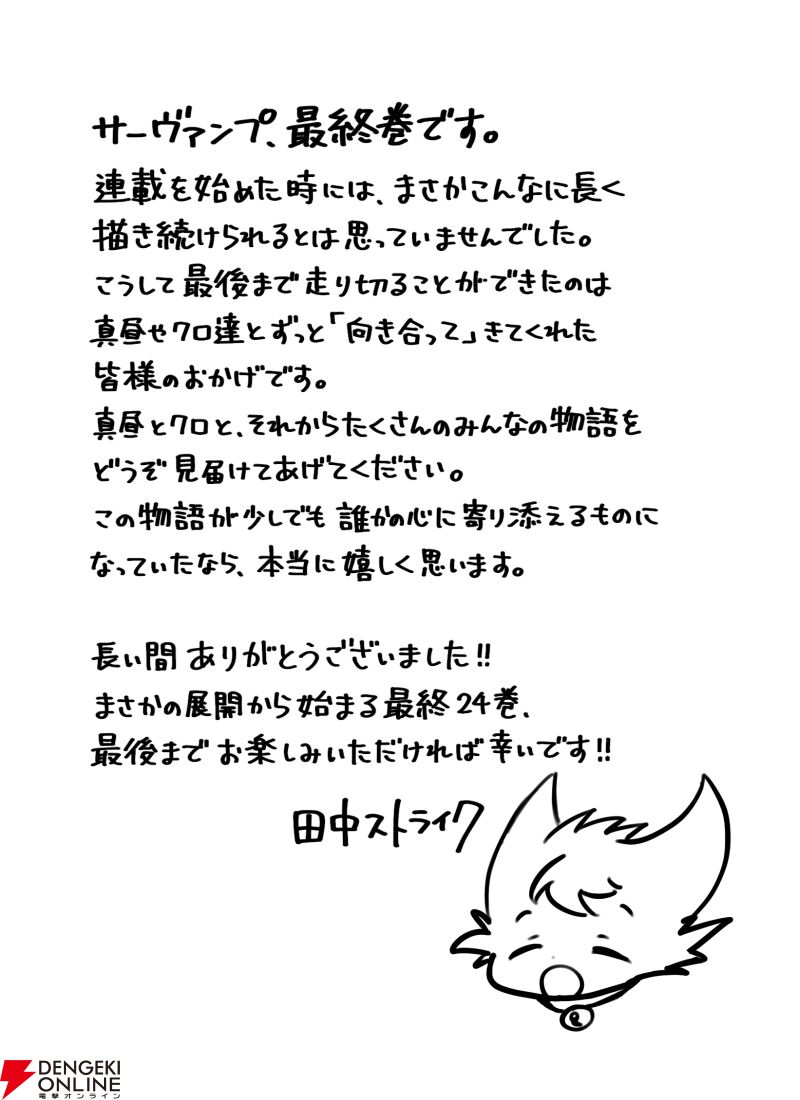 サーヴァンプ、最終巻です。
連載を始めた時には、まさかこんなに長く
描き続けられるとは思っていませんでした。
こうして最後まで走り切ることができたのは
真昼やクロ達とずっと「向き合って」きてくれた
皆様のおかげです。
真昼とクロと、それからたくさんのみんなの物語を
どうぞ見届けてあげてください。
この物語が少しでも誰かの心に寄り添えるものに
なっていたなら、本当に嬉しく思います。
長い間ありがとうございました!!
まさかの展開から始まる最終24巻、
最後までお楽しみいただければ幸いです!!
田中ストライク
R
DENGEKI
ONLINE
電撃オンライン